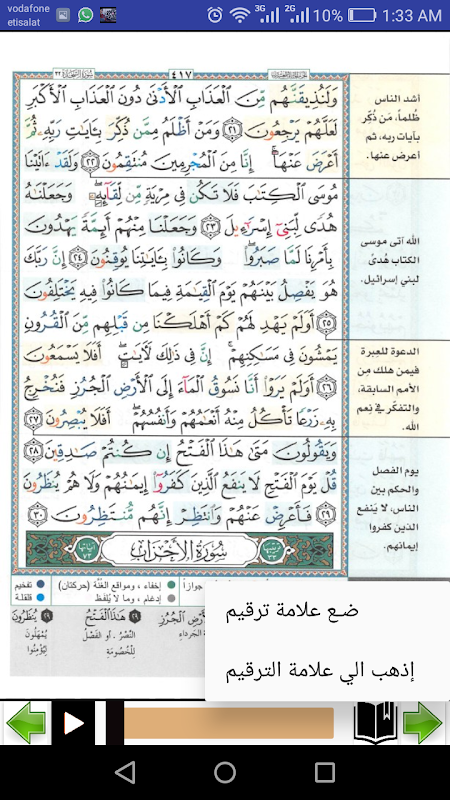 vodafone
etisalat
3G
2G
10%
1:33 AM
٤١٧
وَلَنُذِيقَنَّهُم مِّنَ ٱلْعَذَابِ ٱلْأَدْنَىٰ دُونَ ٱلْعَذَابِ ٱلْأَكْبَرِ
لَعَلَّهُمْ يَرْجِعُونَ ٢١ وَمَنْ أَظْلَمُ مِمَّن ذُكِّرَ بِـَٔايَٰتِ رَبِّهِۦ ثُمَّ
أَعْرَضَ عَنْهَآ ۚ إِنَّا مِنَ ٱلْمُجْرِمِينَ مُنتَقِمُونَ ٢٢ وَلَقَدْ ءَاتَيْنَا
مُوسَى ٱلْكِتَٰبَ فَلَا تَكُن فِى مِرْيَةٍ مِّن لِّقَآئِهِۦ ۖ وَجَعَلْنَٰهُ
هُدًى لِّبَنِىٓ إِسْرَٰٓءِيلَ ٢٣ وَجَعَلْنَا مِنْهُمْ أَئِمَّةً يَهْدُونَ
بِأَمْرِنَا لَمَّا صَبَرُوا۟ ۖ وَكَانُوا۟ بِـَٔايَٰتِنَا يُوقِنُونَ ٢٤ إِنَّ رَبَّكَ
هُوَ يَفْصِلُ بَيْنَهُمْ يَوْمَ ٱلْقِيَٰمَةِ فِيمَا كَانُوا۟ فِيهِ يَخْتَلِفُونَ
٢٥ أَوَلَمْ يَهْدِ لَهُمْ كَمْ أَهْلَكْنَا مِن قَبْلِهِم مِّنَ ٱلْقُرُونِ
يَمْشُونَ فِى مَسَٰكِنِهِمْ ۚ إِنَّ فِى ذَٰلِكَ لَـَٔايَٰتٍ ۖ أَفَلَا يَسْمَعُونَ
٢٦ أَوَلَمْ يَرَوْا۟ أَنَّا نَسُوقُ ٱلْمَآءَ إِلَى ٱلْأَرْضِ ٱلْجُرُزِ فَنُخْرِجُ
بِهِۦ زَرْعًا تَأْكُلُ مِنْهُ أَنْعَٰمُهُمْ وَأَنفُسُهُمْ ۖ أَفَلَا يُبْصِرُونَ ٢٧
وَيَقُولُونَ مَتَىٰ هَٰذَا ٱلْفَتْحُ إِن كُنتُمْ صَٰدِقِينَ ٢٨
قُلْ يَوْمَ ٱلْفَتْحِ لَا يَنفَعُ ٱلَّذِينَ كَفَرُوٓا۟ إِيمَٰنُهُمْ وَلَا هُمْ يُنظَرُونَ
٢٩ فَأَعْرِضْ عَنْهُمْ وَٱنتَظِرْ إِنَّهُم مُّنتَظِرُونَ ٣٠
سُورَةُ الأَحْزَابِ
أشد الناس
ظُلماً، مَن ذُكِّر
بآيات ربه، ثم
أعرض عنها.
الله آتى موسى
الكتاب هُدىً
لبني إسرائيل.
الدعوة للعِبرة
فيمن هلك مِن
الأمم السابقة،
والتفكّر في نِعم
الله.
يوم الفصل
والحكم بين
الناس، لا يَنفع
الذين كفروا
إيمانهم.
جوازاً
إخفاء ، ومواقع الغُنَّة (حركتان)
تفخيم
إدغام ، وما لا يُلفَظ
قلقلة
ٱلْأَرْضِ ٱلْجُرُزِ
الجرداء
٢٨ هَٰذَا ٱلْفَتْحُ
النَّصْرُ . أو الفَصْلُ
لِلْخُصُومَةِ
٢٩ يُنظَرُونَ
يُمْهَلُونَ
لِيُؤْمِنُوا
ضع علامة ترقيم
إذهب الي علامة الترقيم